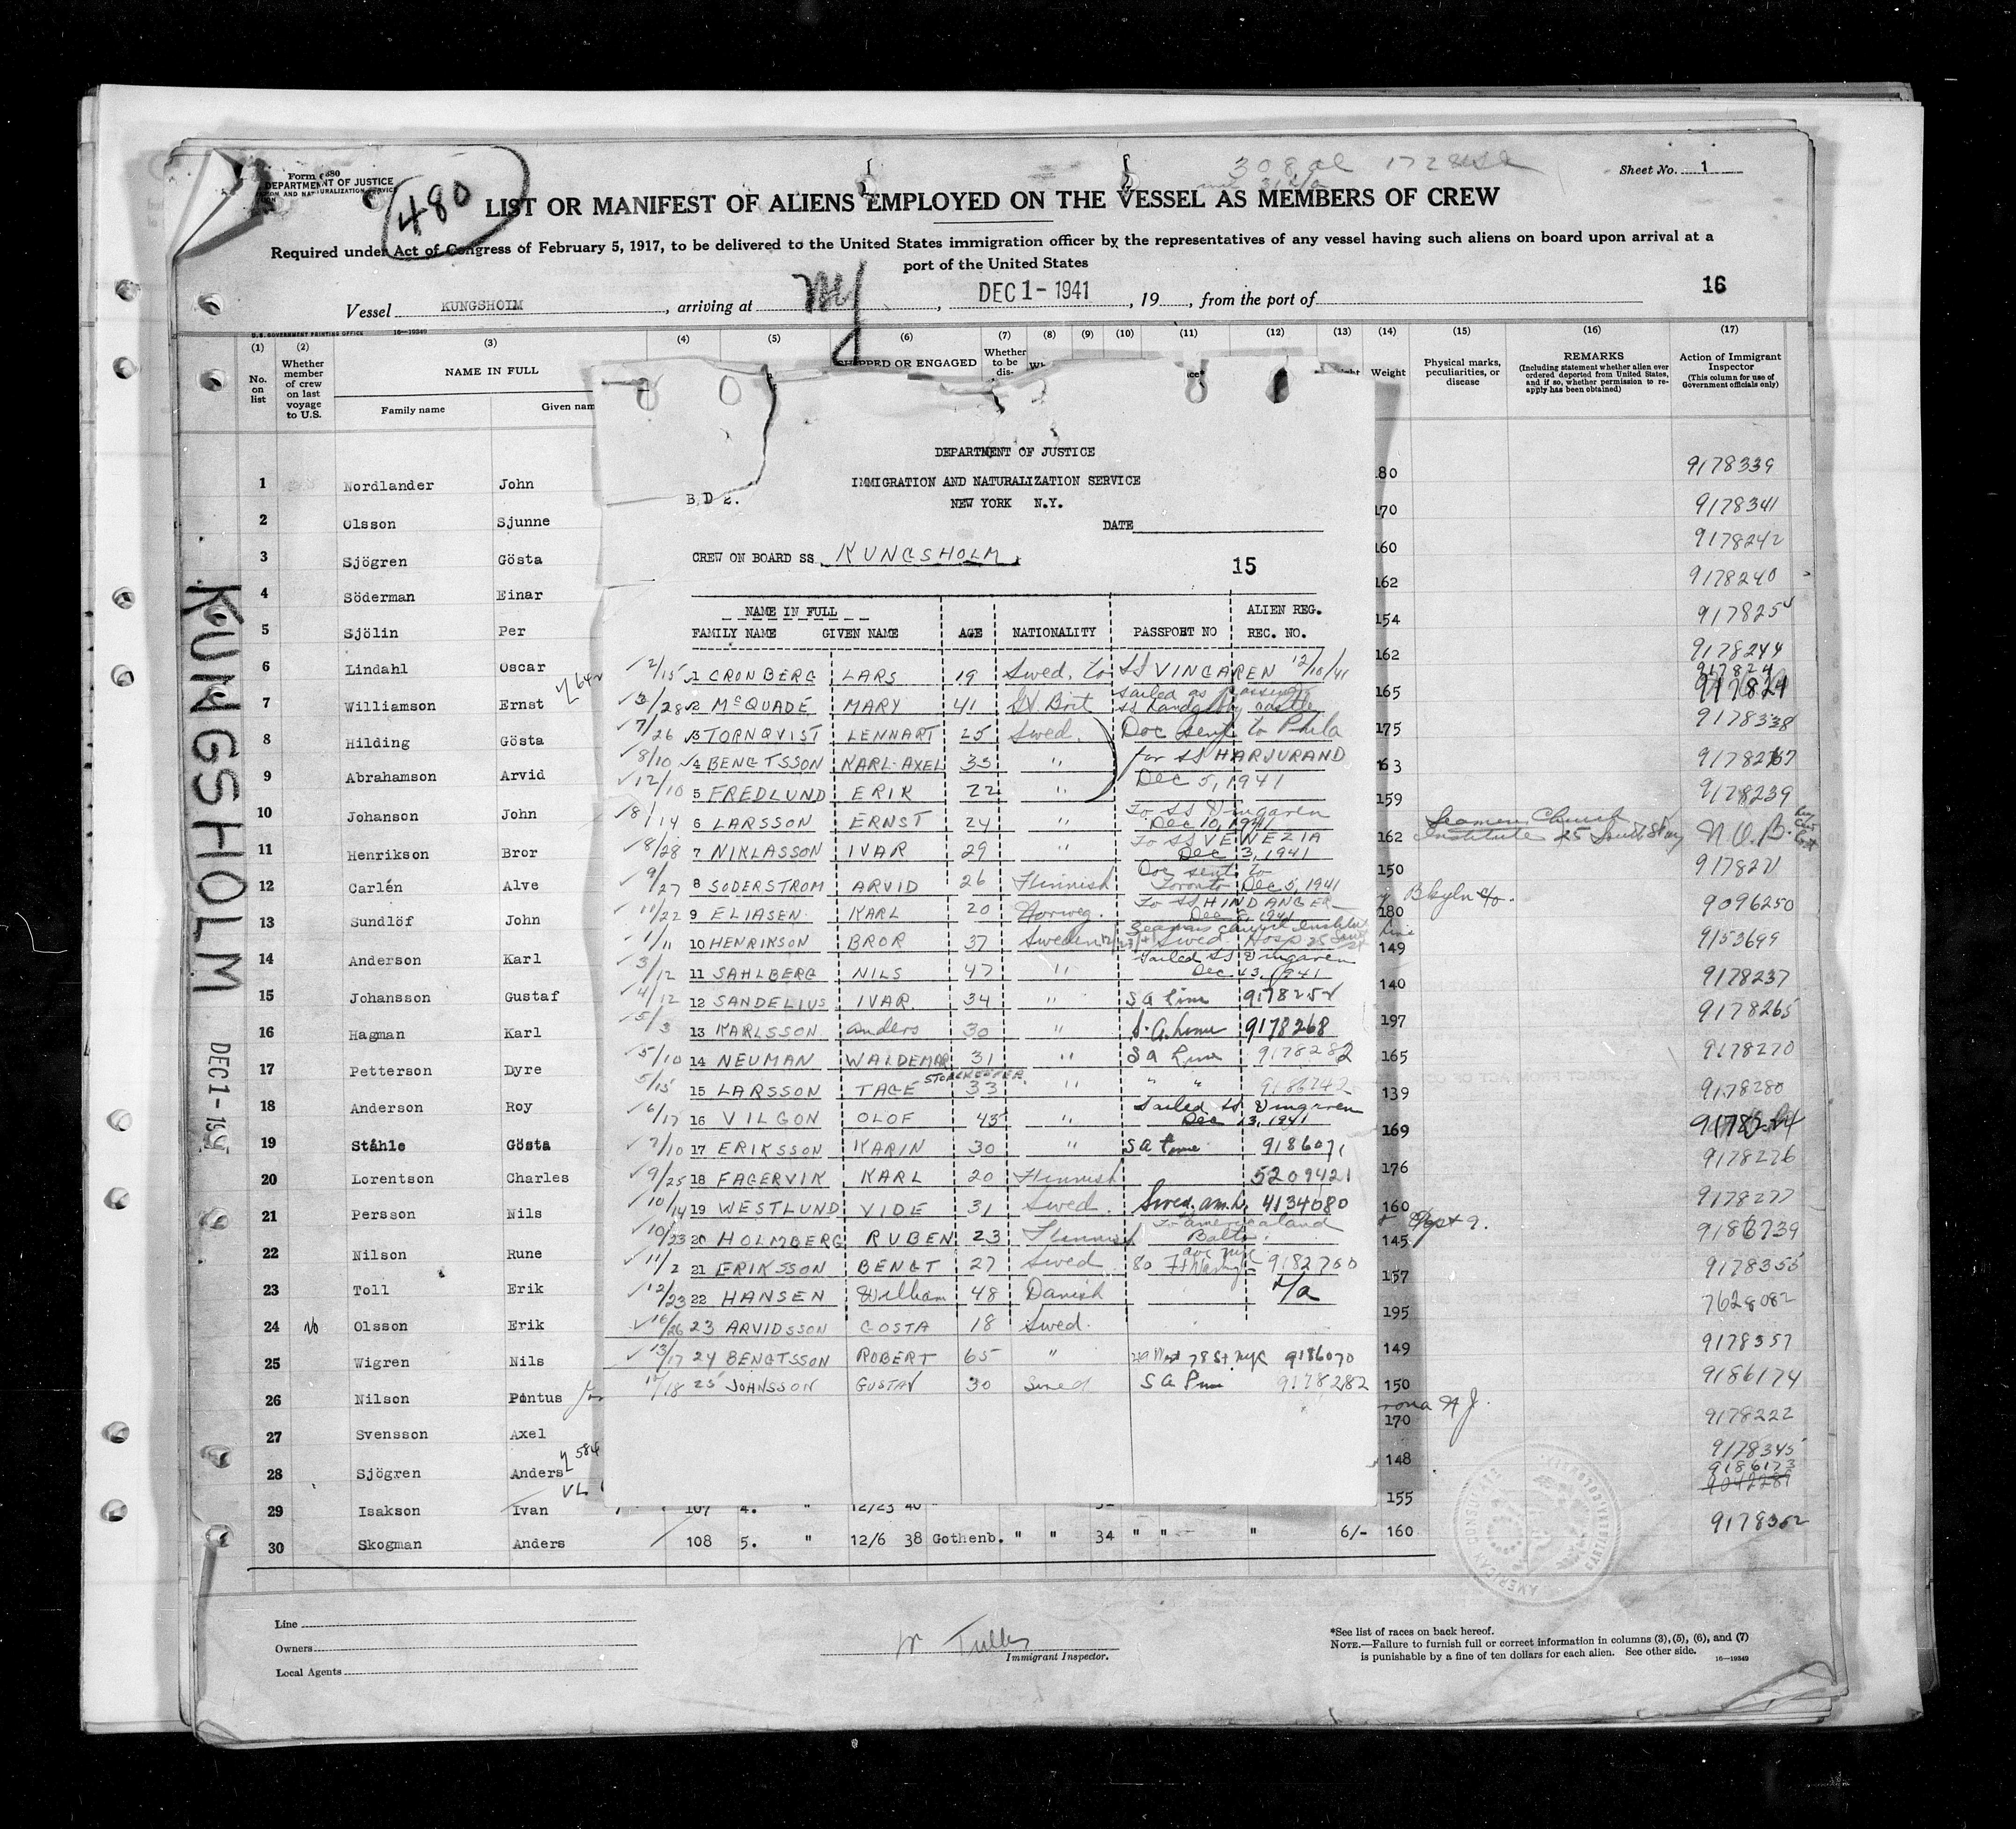 Form 680
DEPARTMENT OF JUSTICE
480
308 al 172 usa
Sheet No. 1
LIST OR MANIFEST OF ALIENS EMPLOYED ON THE VESSEL AS MEMBERS OF CREW
Required under Act of Congress of February 5, 1917, to be delivered to the United States immigration officer by the representatives of any vessel having such aliens on board upon arrival at a
port of the United States
16
Vessel KUNGSHOLM, arriving at NY, DEC 1 - 1941, 19, from the port of
U.S. GOVERNMENT PRINTING OFFICE 16—19349
(1) (2) (3) (4) (5) (6) (7) (8) (9) (10) (11) (12) (13) (14) (15) (16) (17)
No. on list
Whether member of crew on last voyage to U.S.
NAME IN FULL
Family name Given nam
SHIPPED OR ENGAGED
Whether to be dis-
Weight
Physical marks, peculiarities, or disease
REMARKS
(Including statement whether alien ever ordered deported from United States, and if so, whether permission to reapply has been obtained)
Action of Immigrant Inspector
(This column for use of Government officials only)
KUNGSHOLM DEC 1 - 1941
1 Nordlander John 180 9178339
2 Olsson Sjunne 170 9178341
3 Sjögren Gösta 160 9178242
4 Söderman Einar 162 9178240
5 Sjölin Per 154 917825
6 Lindahl Oscar 162 9178244
7 Williamson Ernst 165
8 Hilding Gösta 175 9178338
9 Abrahamson Arvid 163
10 Johanson John 159 9178239
11 Henrikson Bror 162 Seamen Church Institute 25 South St N.O.B.
12 Carlén Alve 150
13 Sundlöf John 180 Bklyn 9096250
14 Anderson Karl 149 9153699
15 Johansson Gustaf 140 9178237
16 Hagman Karl 197 9178265
17 Petterson Dyre 165 9178270
18 Anderson Roy 139 9178280
19 Ståhle Gösta 169
20 Lorentson Charles 176 9178276
21 Persson Nils 160 9178277
22 Nilson Rune 145 9186739
23 Toll Erik 157 9178355
24 No Olsson Erik 195 7628082
25 Wigren Nils 149 9178357
26 Nilson Pontus 150 9186174
27 Svensson Axel 170 9178222
28 Sjögren Anders 148 9178345
9186173
9042289
29 Isakson Ivan 107 4. " 12/23 40 155
30 Skogman Anders 108 5. " 12/6 38 Gothenb. " " 34 " " " 6/- 160 9178352
DEPARTMENT OF JUSTICE
IMMIGRATION AND NATURALIZATION SERVICE
B.D E.
NEW YORK N.Y.
DATE
CREW ON BOARD SS. KUNGSHOLM.
15
NAME IN FULL ALIEN REG.
FAMILY NAME GIVEN NAME AGE NATIONALITY PASSPORT NO REC. NO.
2/15 1 CRONBERG LARS 19 Swed. to SS VINGAREN 12/10/41
3/28 2 McQUADE MARY 41 Gt. Brit Sailed as passenger
7/26 3 TORNQVIST LENNART 25 Swed. Doc sent to Phila
8/10 4 BENGTSSON KARL-AXEL 35 " for SS HARJURAND
12/10 5 FREDLUND ERIK 22 " Dec 5, 1941
18/14 6 LARSSON ERNST 24 " To SS Vingaren Dec 10, 1941
8/28 7 NIKLASSON IVAR 29 " To SS VENEZIA Dec 3, 1941
9/27 8 SODERSTROM ARVID 26 Finnish Doc sent to Toronto Dec 5, 1941
11/22 9 ELIASEN KARL 20 Norweg. To SS HINDANGER Dec 2, 1941
1/11 10 HENRIKSON BROR 37 Sweden Seamans Church Institute
3/12 11 SAHLBERG NILS 47 " Sailed SS Vingaren Dec. 13, 1941
4/12 12 SANDELIUS IVAR 34 " S A Line 9178252
5/3 13 KARLSSON Anders 30 " S. A. Line 9178268
5/10 14 NEUMAN WALDEMAR 31 " S A Line 9178282
5/15 15 LARSSON TAGE STOREKEEPER 33 " " " 9186742
6/17 16 VILGON OLOF 43 " Sailed SS Vingaren Dec 13, 1941
7/10 17 ERIKSSON KARIN 30 " S A Line 9186071
9/25 18 FAGERVIK KARL 20 Finnish 5209421
10/14 19 WESTLUND VIDE 31 Swed. Swed. Am. L. 4134080
10/23 20 HOLMBERG RUBEN 23 Finnish To Americaland Balto.
11/2 21 ERIKSSON BENGT 27 Swed 80 Ft Wash Ave NYC 9182760
12/23 22 HANSEN William 48 Danish n/a
16/26 23 ARVIDSSON GOSTA 18 Swed.
13/17 24 BENGTSSON ROBERT 65 " West 78 St. NYC 9186070
12/18 25 JOHNSSON GUSTAV 30 Swed S A Line 9178282
Line
Owners
Local Agents
Immigrant Inspector.
*See list of races on back hereof.
NOTE.—Failure to furnish full or correct information in columns (3), (5), (6), and (7)
is punishable by a fine of ten dollars for each alien. See other side. 16—19349